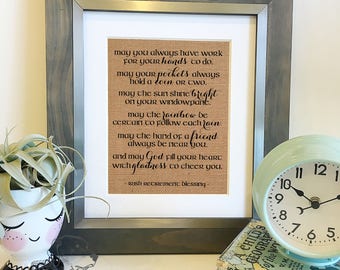 may you always have work
for your hands to do.
may your pockets always
hold a coin or two.
may the sun shine bright
on your windowpane.
may the rainbow be
certain to follow each rain
may the hand of a friend
always be near you.
and may God fill your heart
with gladness to cheer you.
- irish retirement blessing -